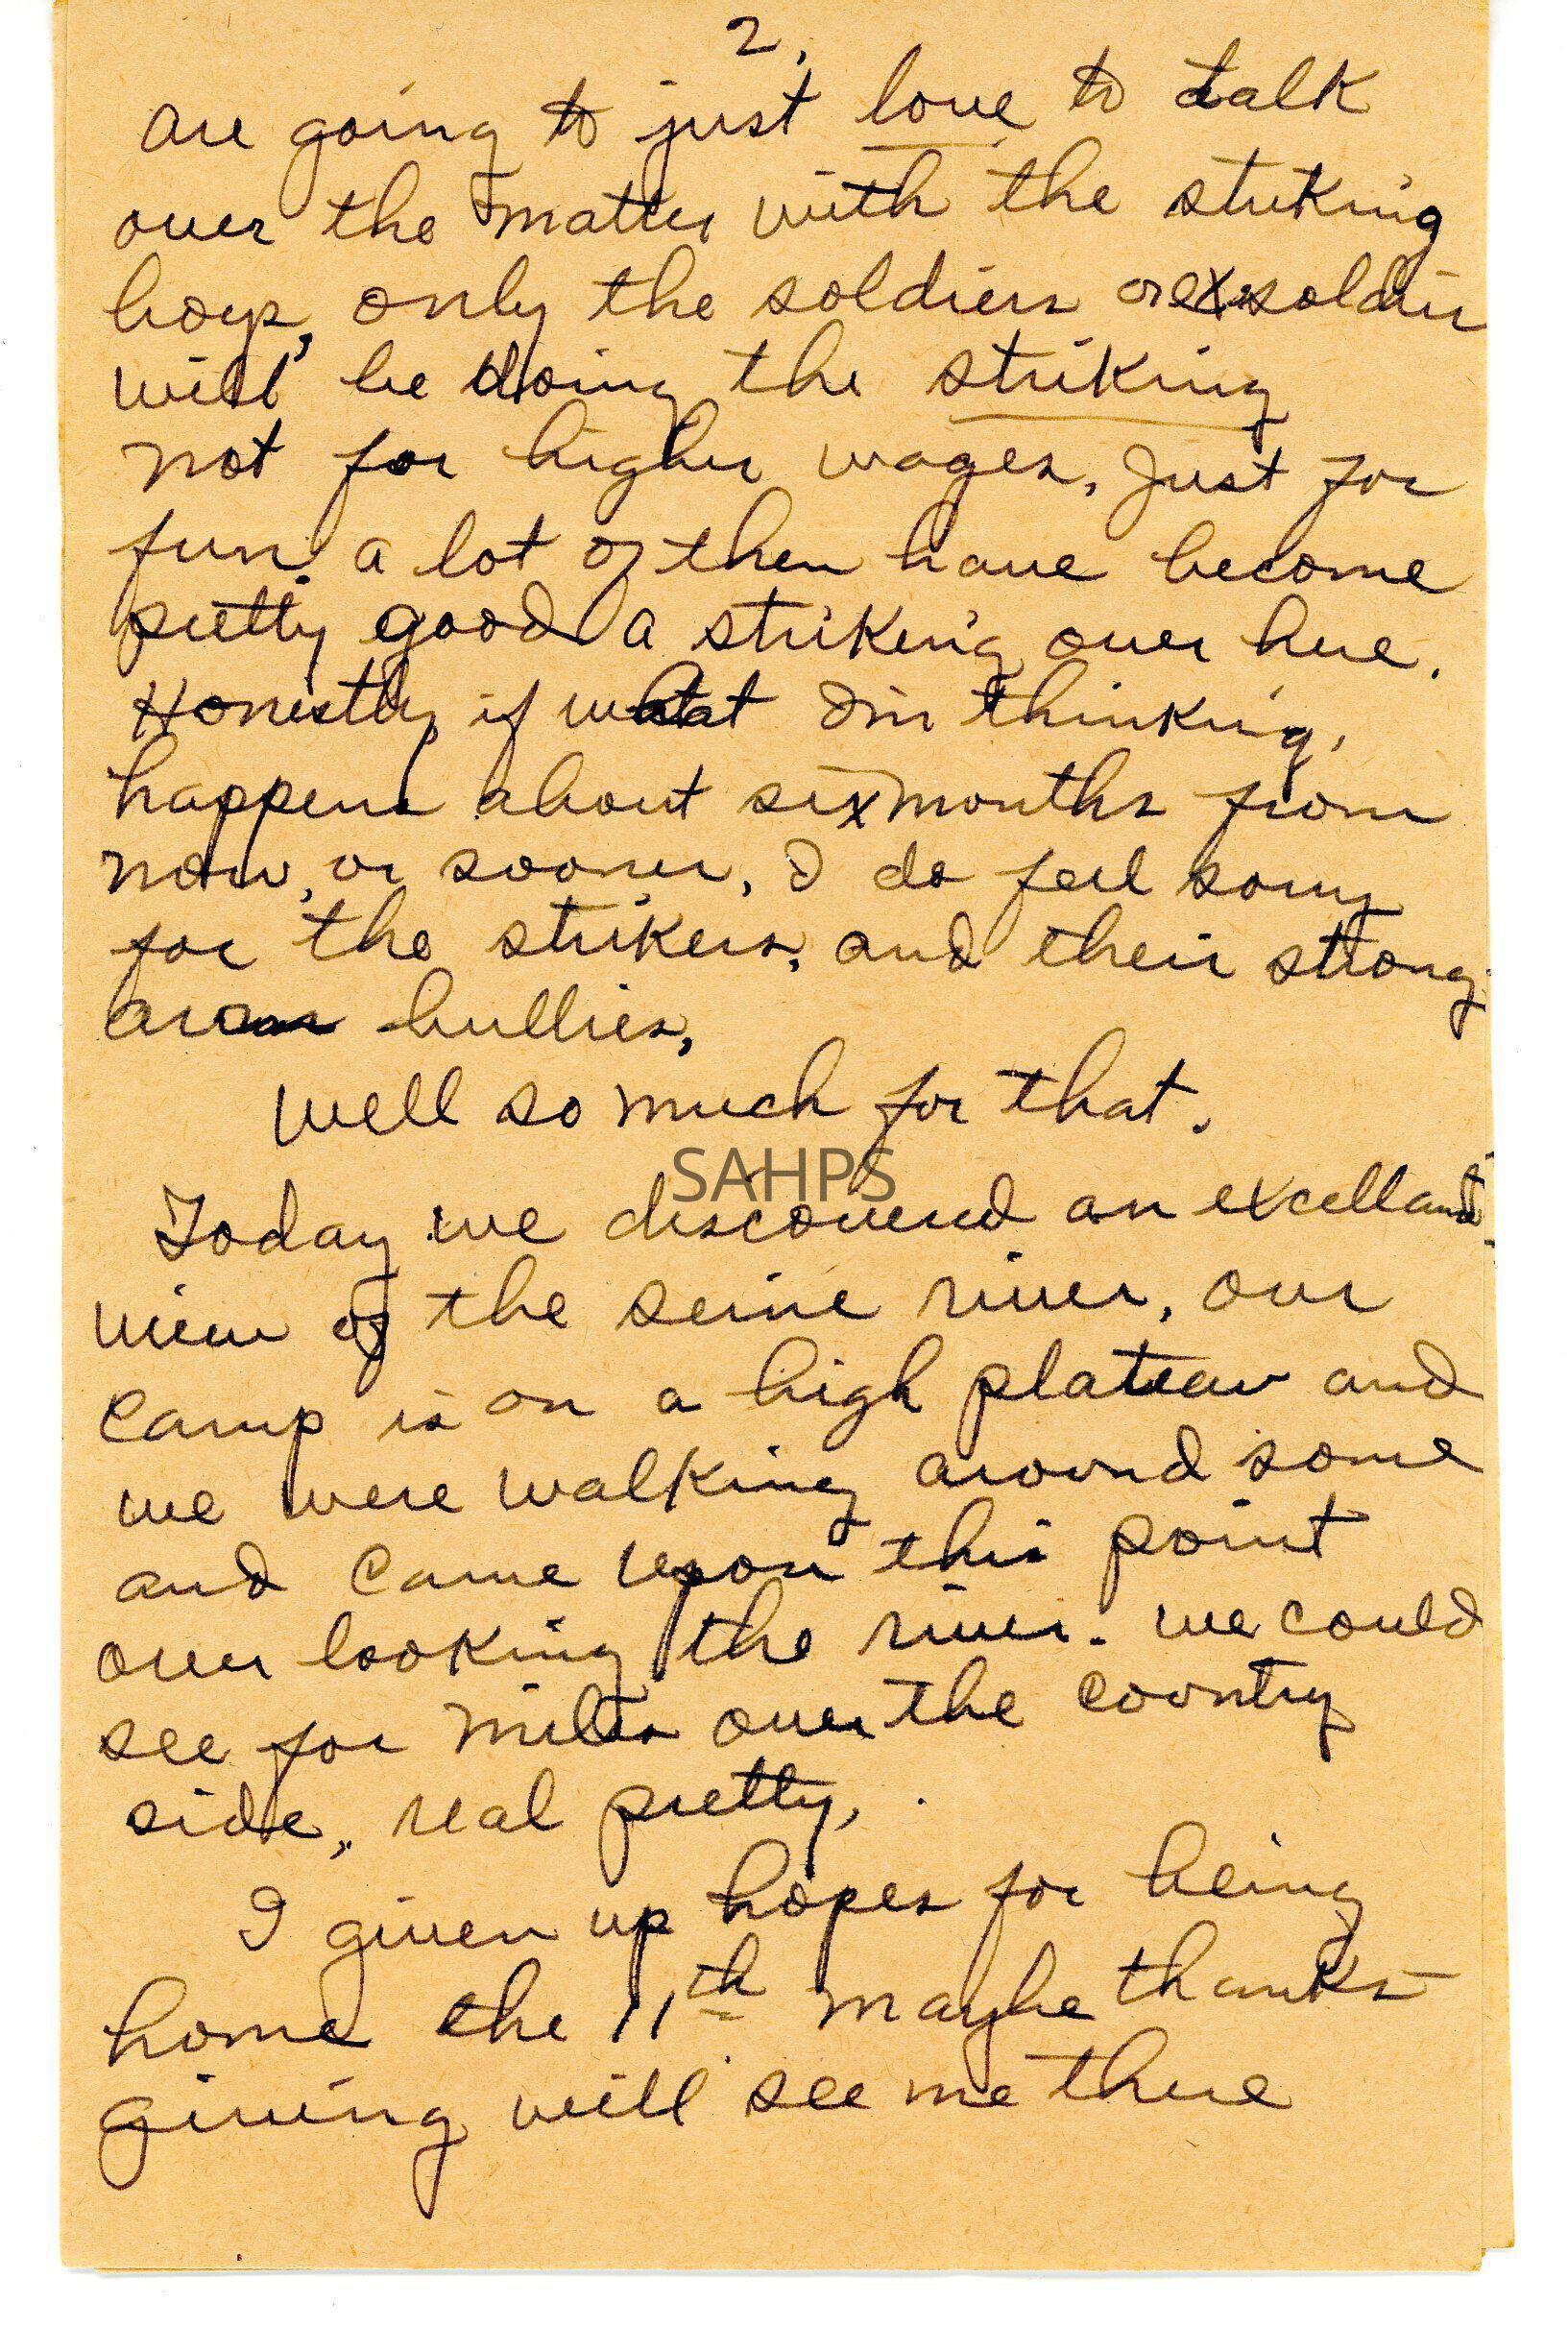 2,
are going to just love to talk
over the matter with the striking
boys, only the soldiers or exsoldier
will be doing the striking
not for higher wages, Just for
fun. a lot of them have become
pretty good a striking over here.
Honestly if what I'm thinking,
happens about six months from
now, or sooner, I do feel sorry
for the strikers, and their strong
arm bullies,
well so much for that.
SAHPS
Today we discovered an excellant
view of the seine river, our
camp is on a high plateau and
we were walking around some
and came upon this point
over looking the river. we could
see for miles over the country
side, real pretty,.
I given up hopes for being
home the 11th maybe thanks-
giving will see me there